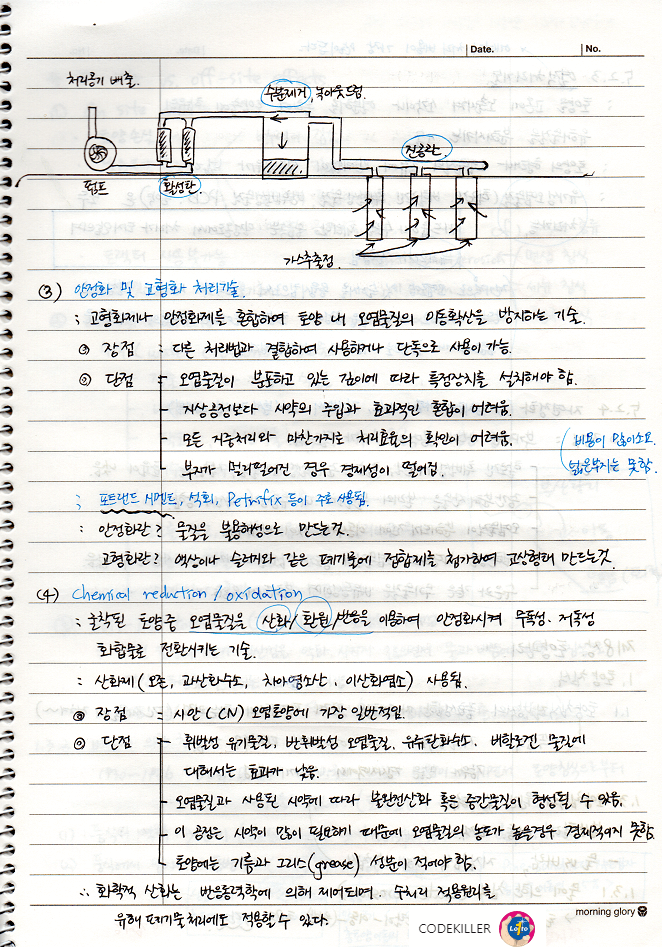 Date.
No.
처리공기 배출.
수분제거, 녹아웃드럼.
진공관.
펌프
활성탄
가스추출정.
(3) 안정화 및 고형화 처리기술.
: 고형화제나 안정화제를 혼합하여 토양 내 오염물질의 이동확산을 방지하는 기술.
◎ 장점 : 다른 처리법과 결합하여 사용하거나 단독으로 사용이 가능.
◎ 단점 - 오염물질이 분포하고 있는 깊이에 따라 특정장치를 설치해야 함.
- 지상공정보다 시약의 주입과 효과적인 혼합이 어려움.
- 모든 지중처리와 마찬가지로 처리효율의 확인이 어려움.
- 부지가 멀리떨어진 경우 경제성이 떨어짐.
비용이 많이소요.
넓은부지는 못함.
; 포트랜드 시멘트, 석회, Petrifix 등이 주로 사용됨.
: 안정화란? 물질을 불용해성으로 만드는것.
고형화란? 액상이나 슬러지와 같은 폐기물에 접합제를 첨가하여 고상형태 만드는것.
(4) Chemical reduction / oxidation
: 굴착된 토양중 오염물질을 산화/환원/반응을 이용하여 안정화시켜 무독성. 저독성
화합물로 전환시키는 기술.
: 산화제 (오존, 과산화수소, 차아염소산, 이산화염소) 사용됨.
◎ 장점 : 시안 (CN) 오염토양에 가장 일반적임.
◎ 단점 - 휘발성 유기물질, 반휘발성 오염물질, 유류탄화수소. 버할로겐 물질에
대해서는 효과가 낮음.
- 오염물질과 사용된 시약에 따라 불완전산화 혹은 중간물질이 형성될 수 있음.
- 이 공정은 시약이 많이 필요하기 때문에 오염물질의 농도가 높을경우 경제적이지 못함.
- 토양에는 기름과 그리스(grease) 성분이 적어야 함.
∴ 화학적 산화는 반응동력학에 의해 제어되며, 수처리 적용원리를
유해 폐기물 처리에도 적용할 수 있다.
morning glory
CODEKILLER
Lotto